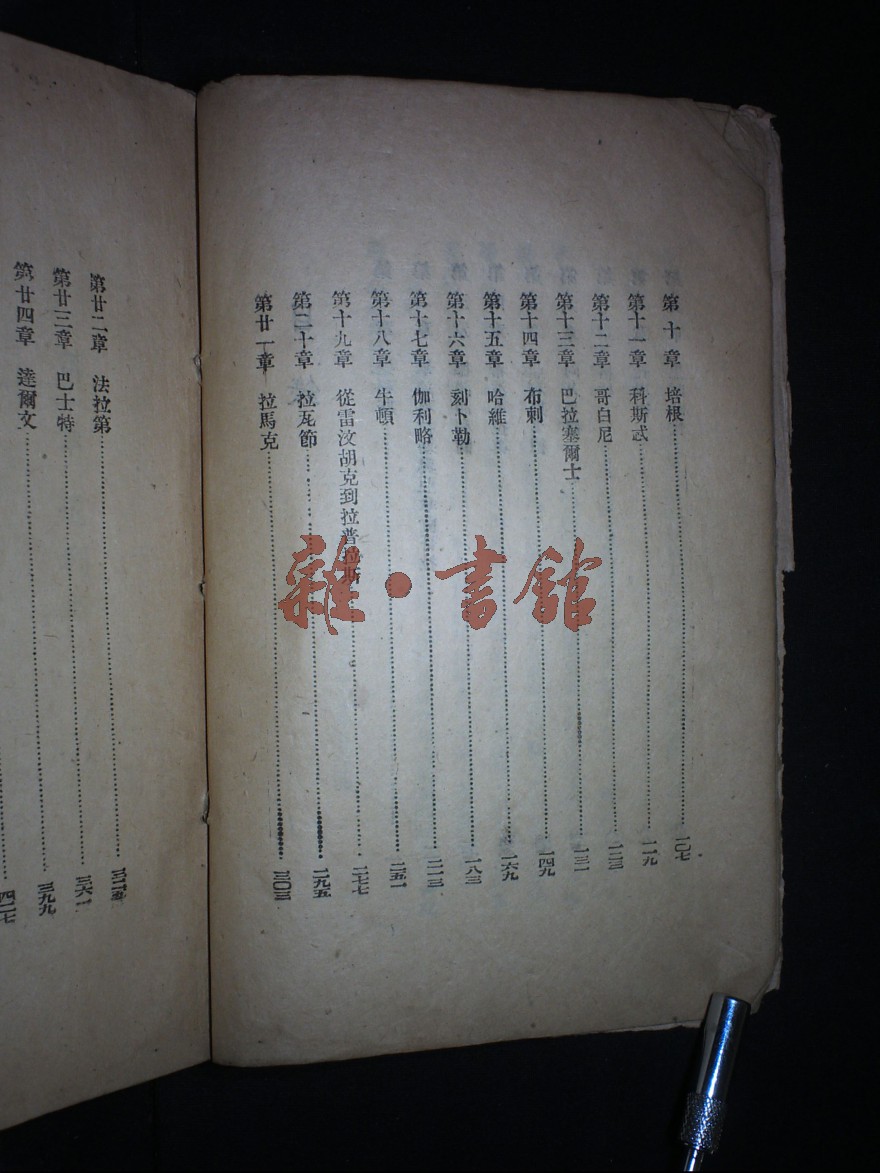 第十章 培根 一〇七
第十一章 科斯忒 一一九
第十二章 哥白尼 一二三
第十三章 巴拉塞爾士 一三一
第十四章 布剌 一四九
第十五章 哈維 一六九
第十六章 刻卜勒 一八三
第十七章 伽利略 二一三
第十八章 牛頓 二五一
第十九章 從雷汶胡克到拉普拉斯 二七七
第二十章 拉瓦節 二九五
第廿一章 拉馬克 三〇三
第廿二章 法拉第
第廿三章 巴士特 三六一
第廿四章 達爾文 三九九
四二七
雜·書館